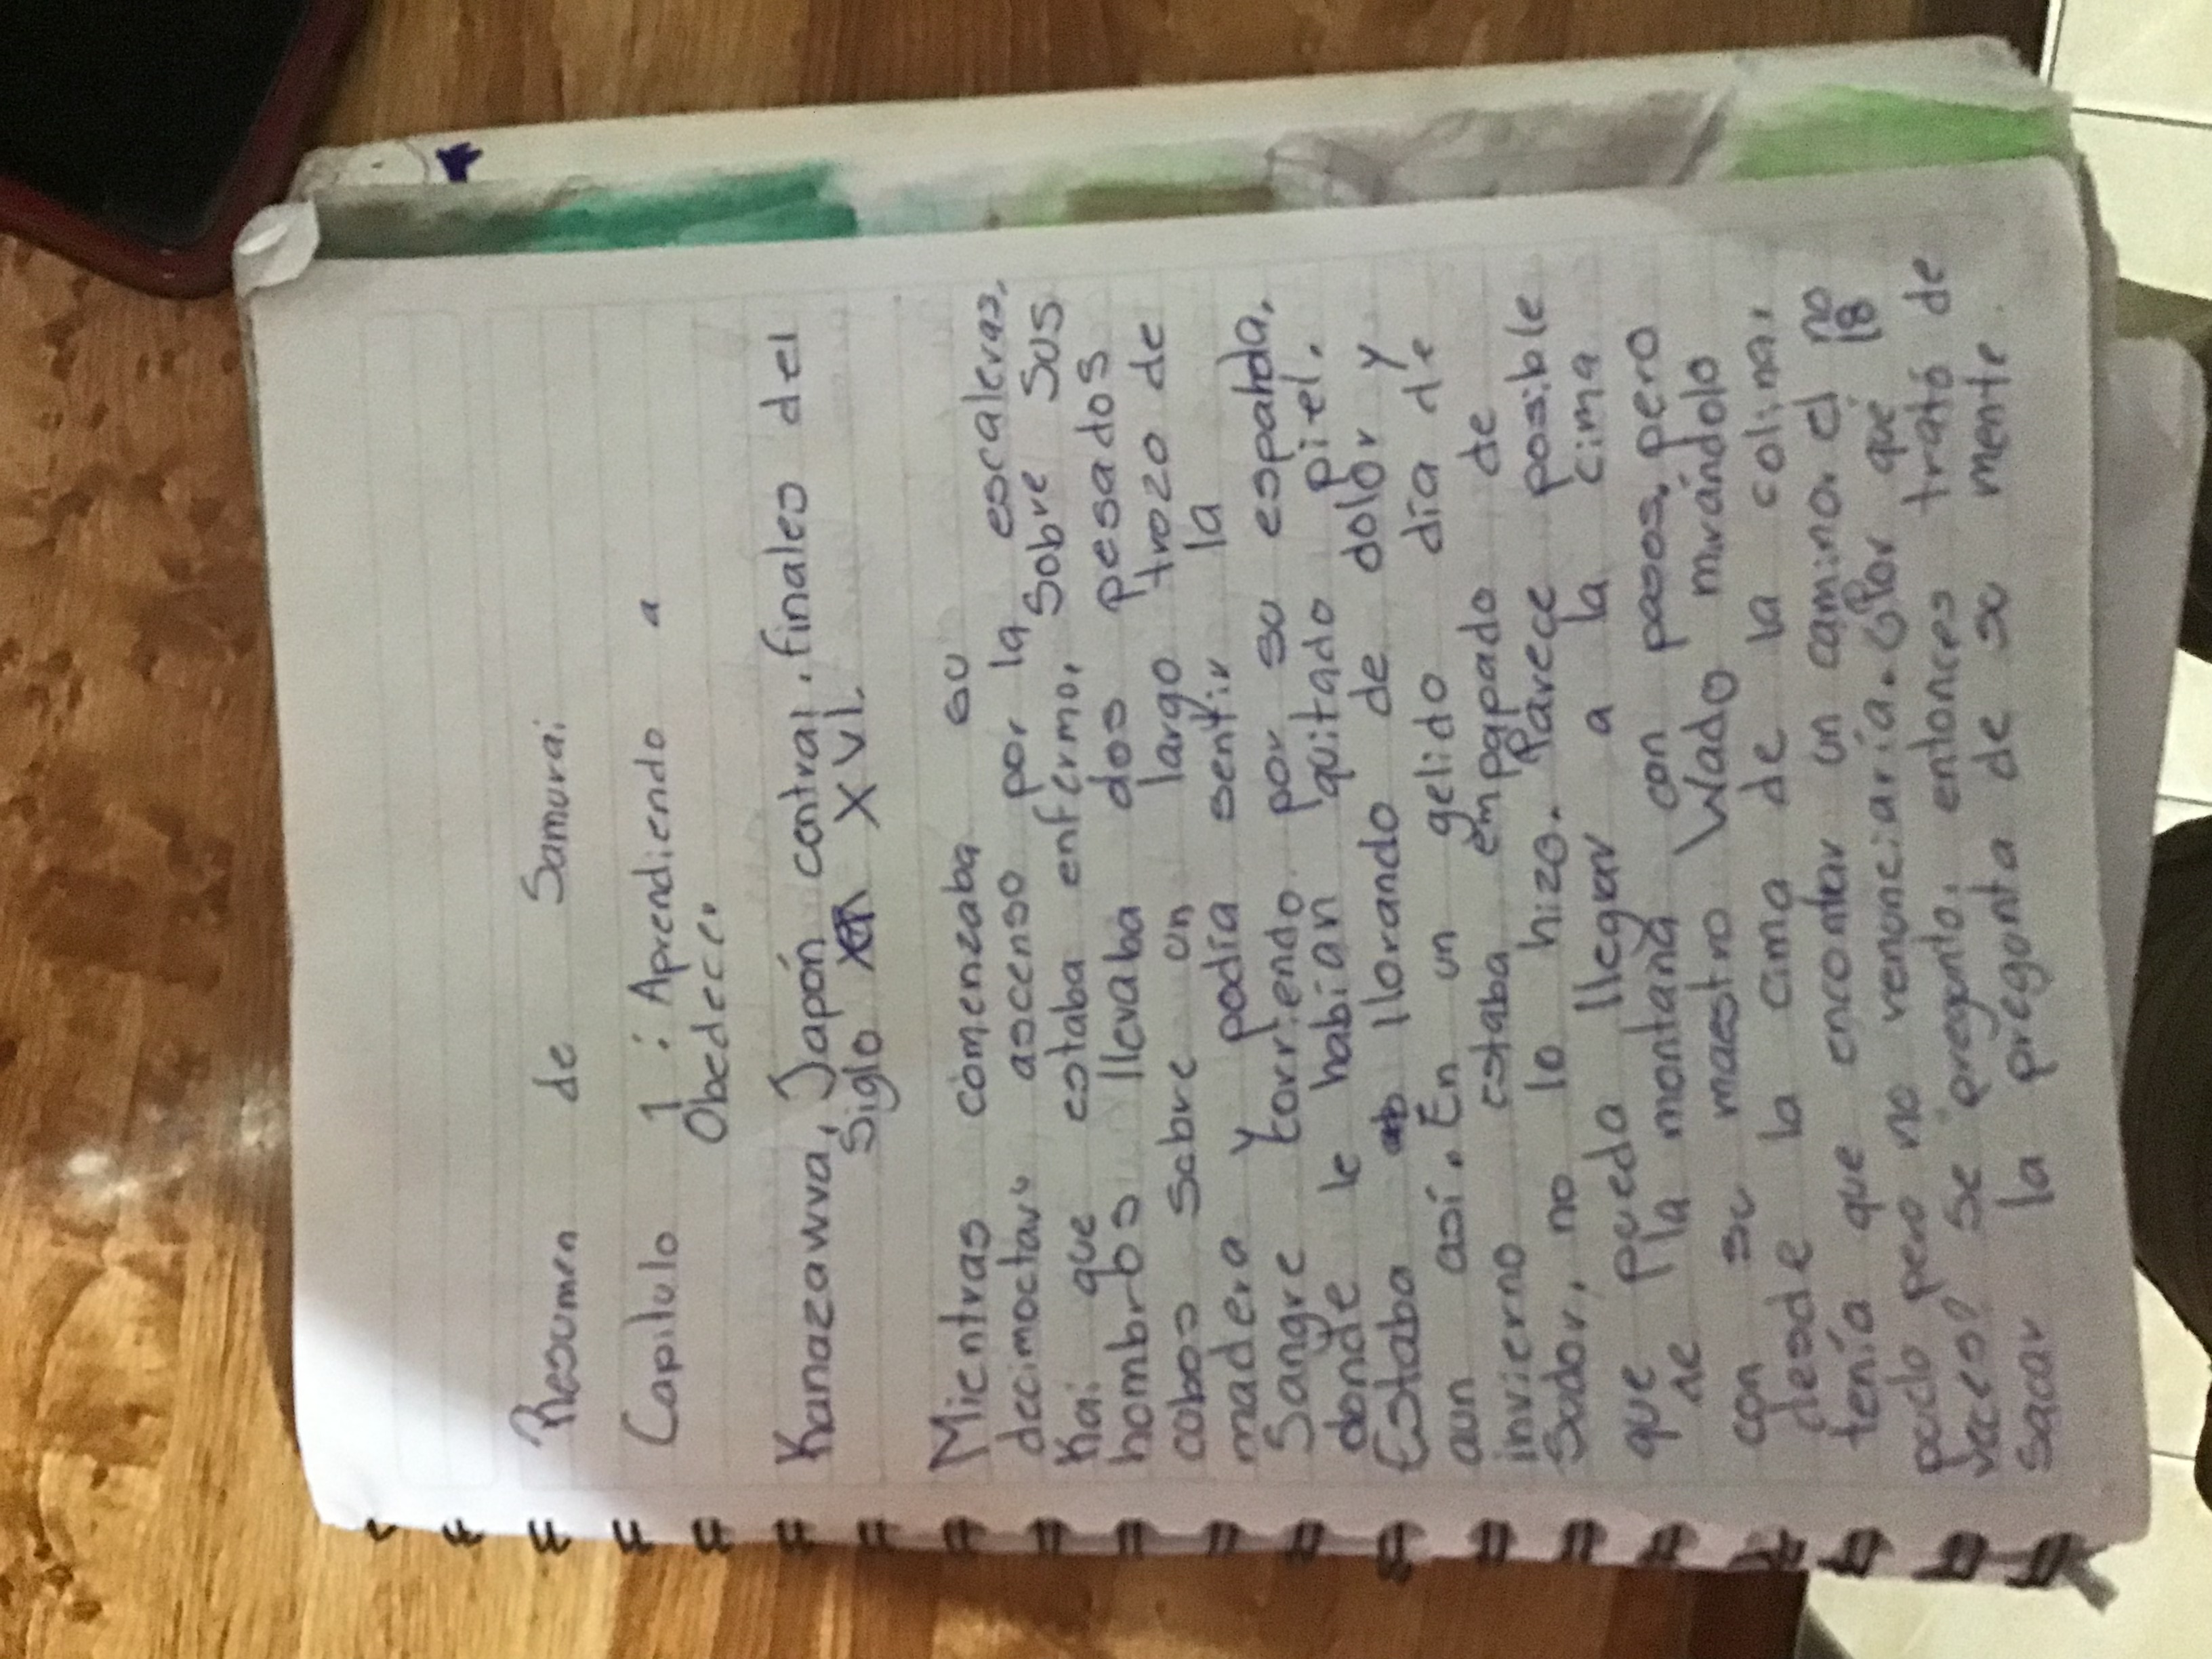 Resumen de Samurai
Capitulo 1: Aprendiendo a
Obedecer
Kanazawa, Japón central, finales del
Siglo XVI.
Mientras comenzaba su
decimoctavo ascenso por la escaleras,
Kai que estaba enfermo, sobre sus
hombros llevaba dos pesados
cobos sobre un largo trozo de
madera y podía sentir la
Sangre corriendo por su espalda,
donde le habían quitado piel.
Estaba llorando de dolor y
aun así. En un gelido día de
invierno estaba empapado de
Sudor, no lo hizo. Parece posible
que pueda llegar a la cima
de la montaña con pasos, pero
con su maestro Wado mirándolo
desde la cima de la colina,
tenía que encontrar un camino. el no
pudo pero no renonciaría. ¿Por qué 18
veces? se pregunto, entonces trató de
sacar la pregunta de su mente